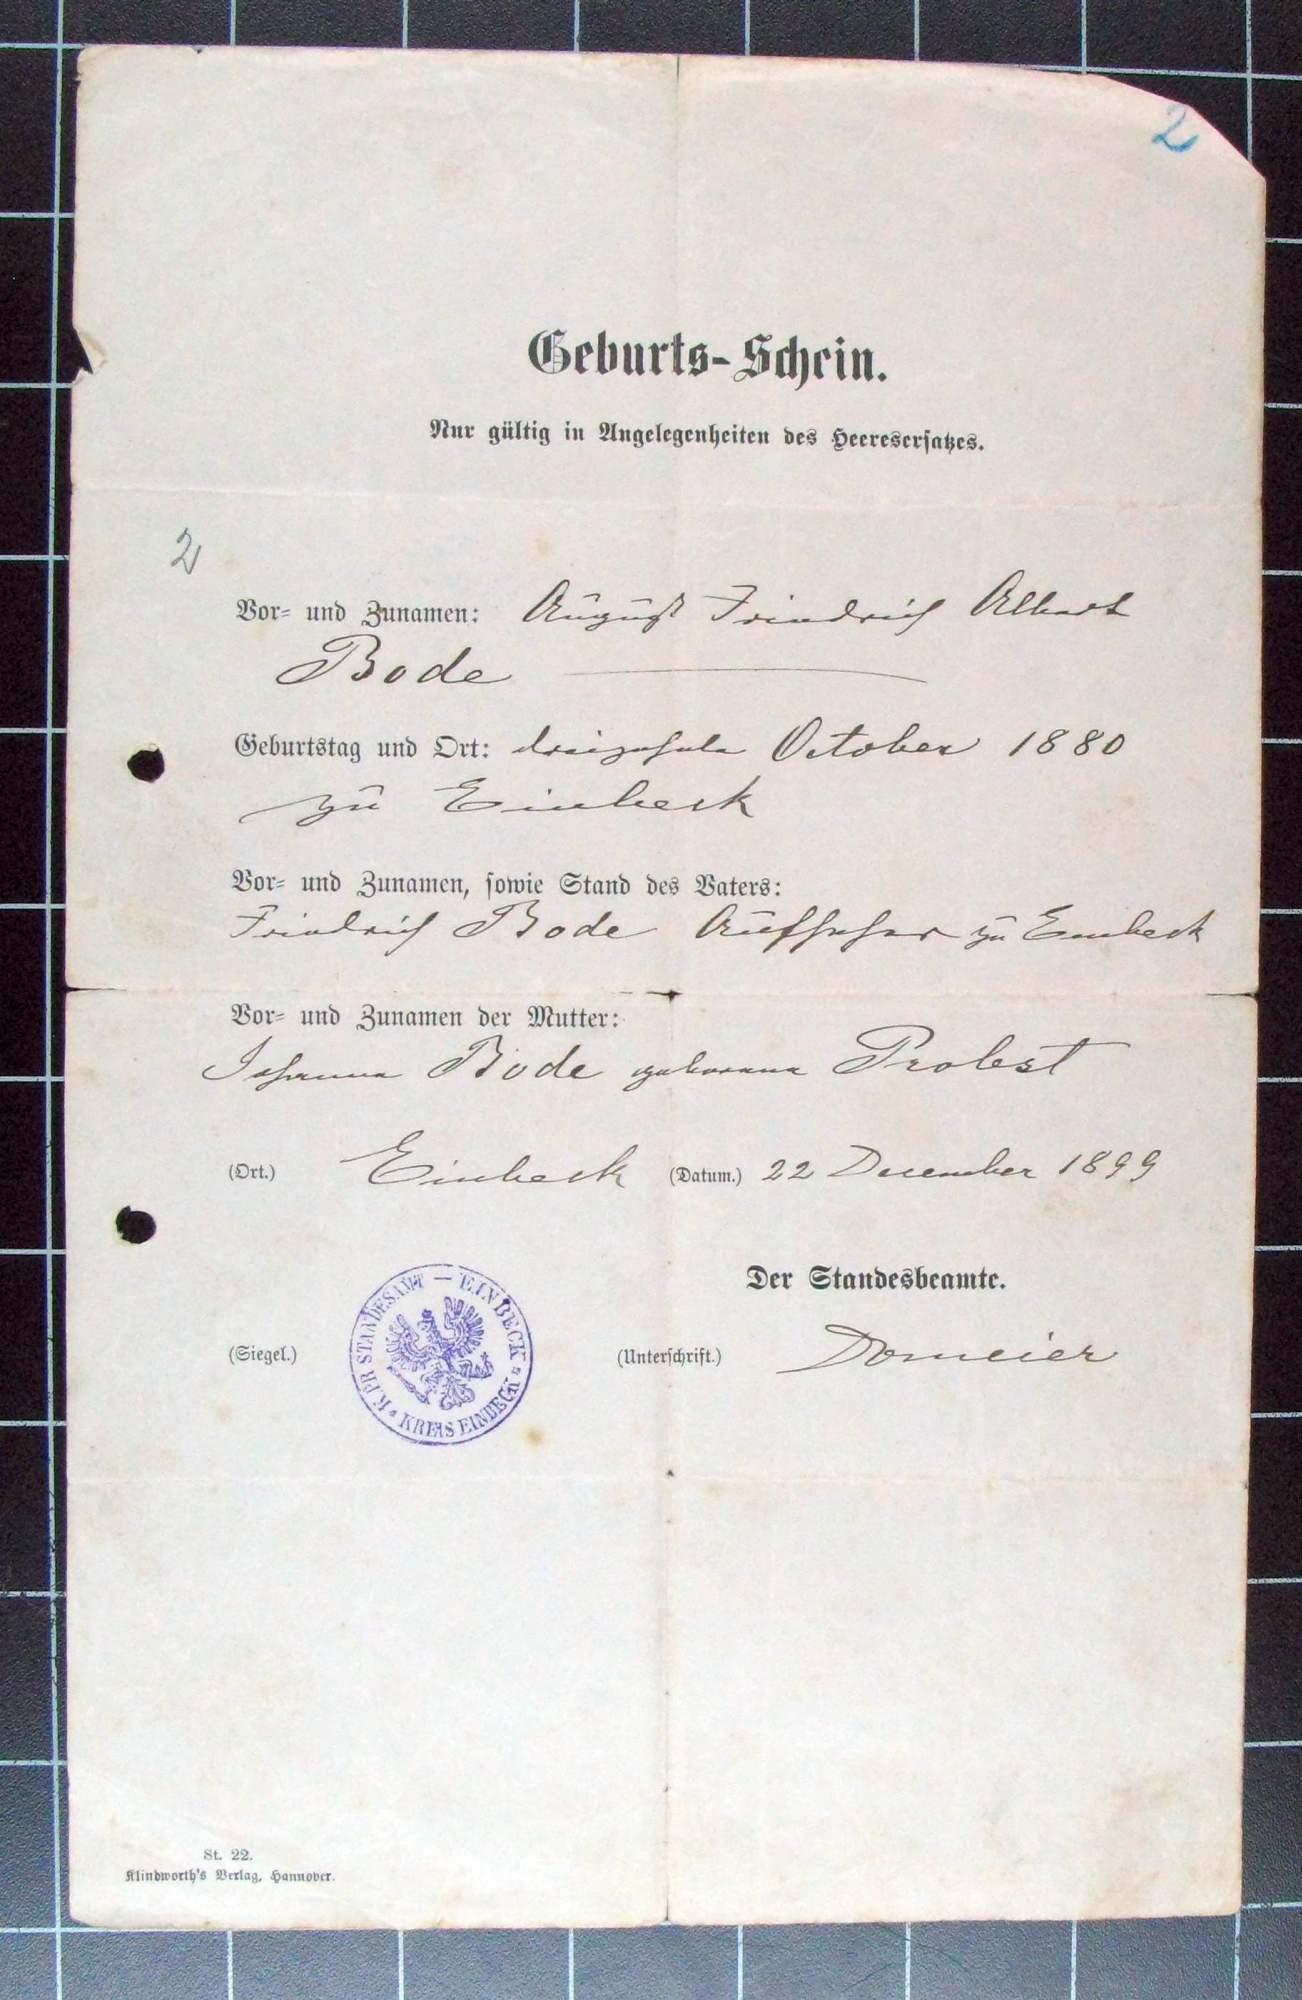 2
Geburts-Schein.
Nur gültig in Angelegenheiten des Heeresersatzes.
2
Vor- und Zunamen: August Friedrich Albert
Bode
Geburtstag und Ort: dreizehnte October 1880
zu Einbeck
Vor- und Zunamen, sowie Stand des Vaters:
Friedrich Bode Aufseher zu Einbeck
Vor- und Zunamen der Mutter:
Johanne Bode geborene Probst
(Ort.) Einbeck (Datum.) 22 December 1899
Der Standesbeamte.
(Siegel.) K. PR STANDESAMT — EINBECK * KREIS EINBECK * (Unterschrift.) Domeier
St. 22.
Klindworth's Verlag, Hannover.